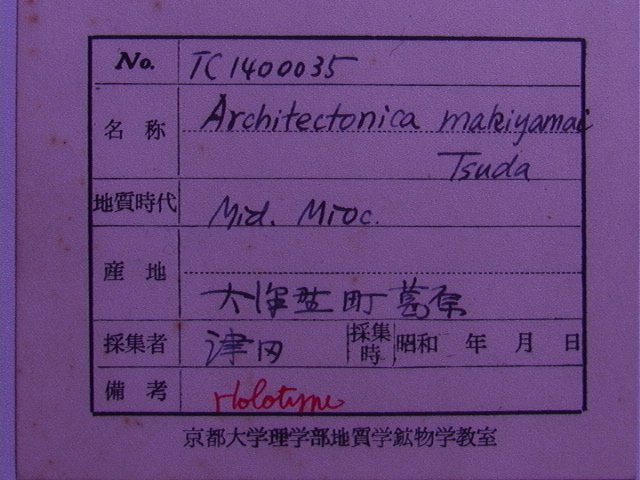 No. TC1400035
名称 Architectonica makiyamai
Tsuda
地質時代 Mid. Mioc.
産地
町葛原
採集者 津田 採集時 昭和 年 月 日
備考 Holotype
京都大学理学部地質学鉱物学教室